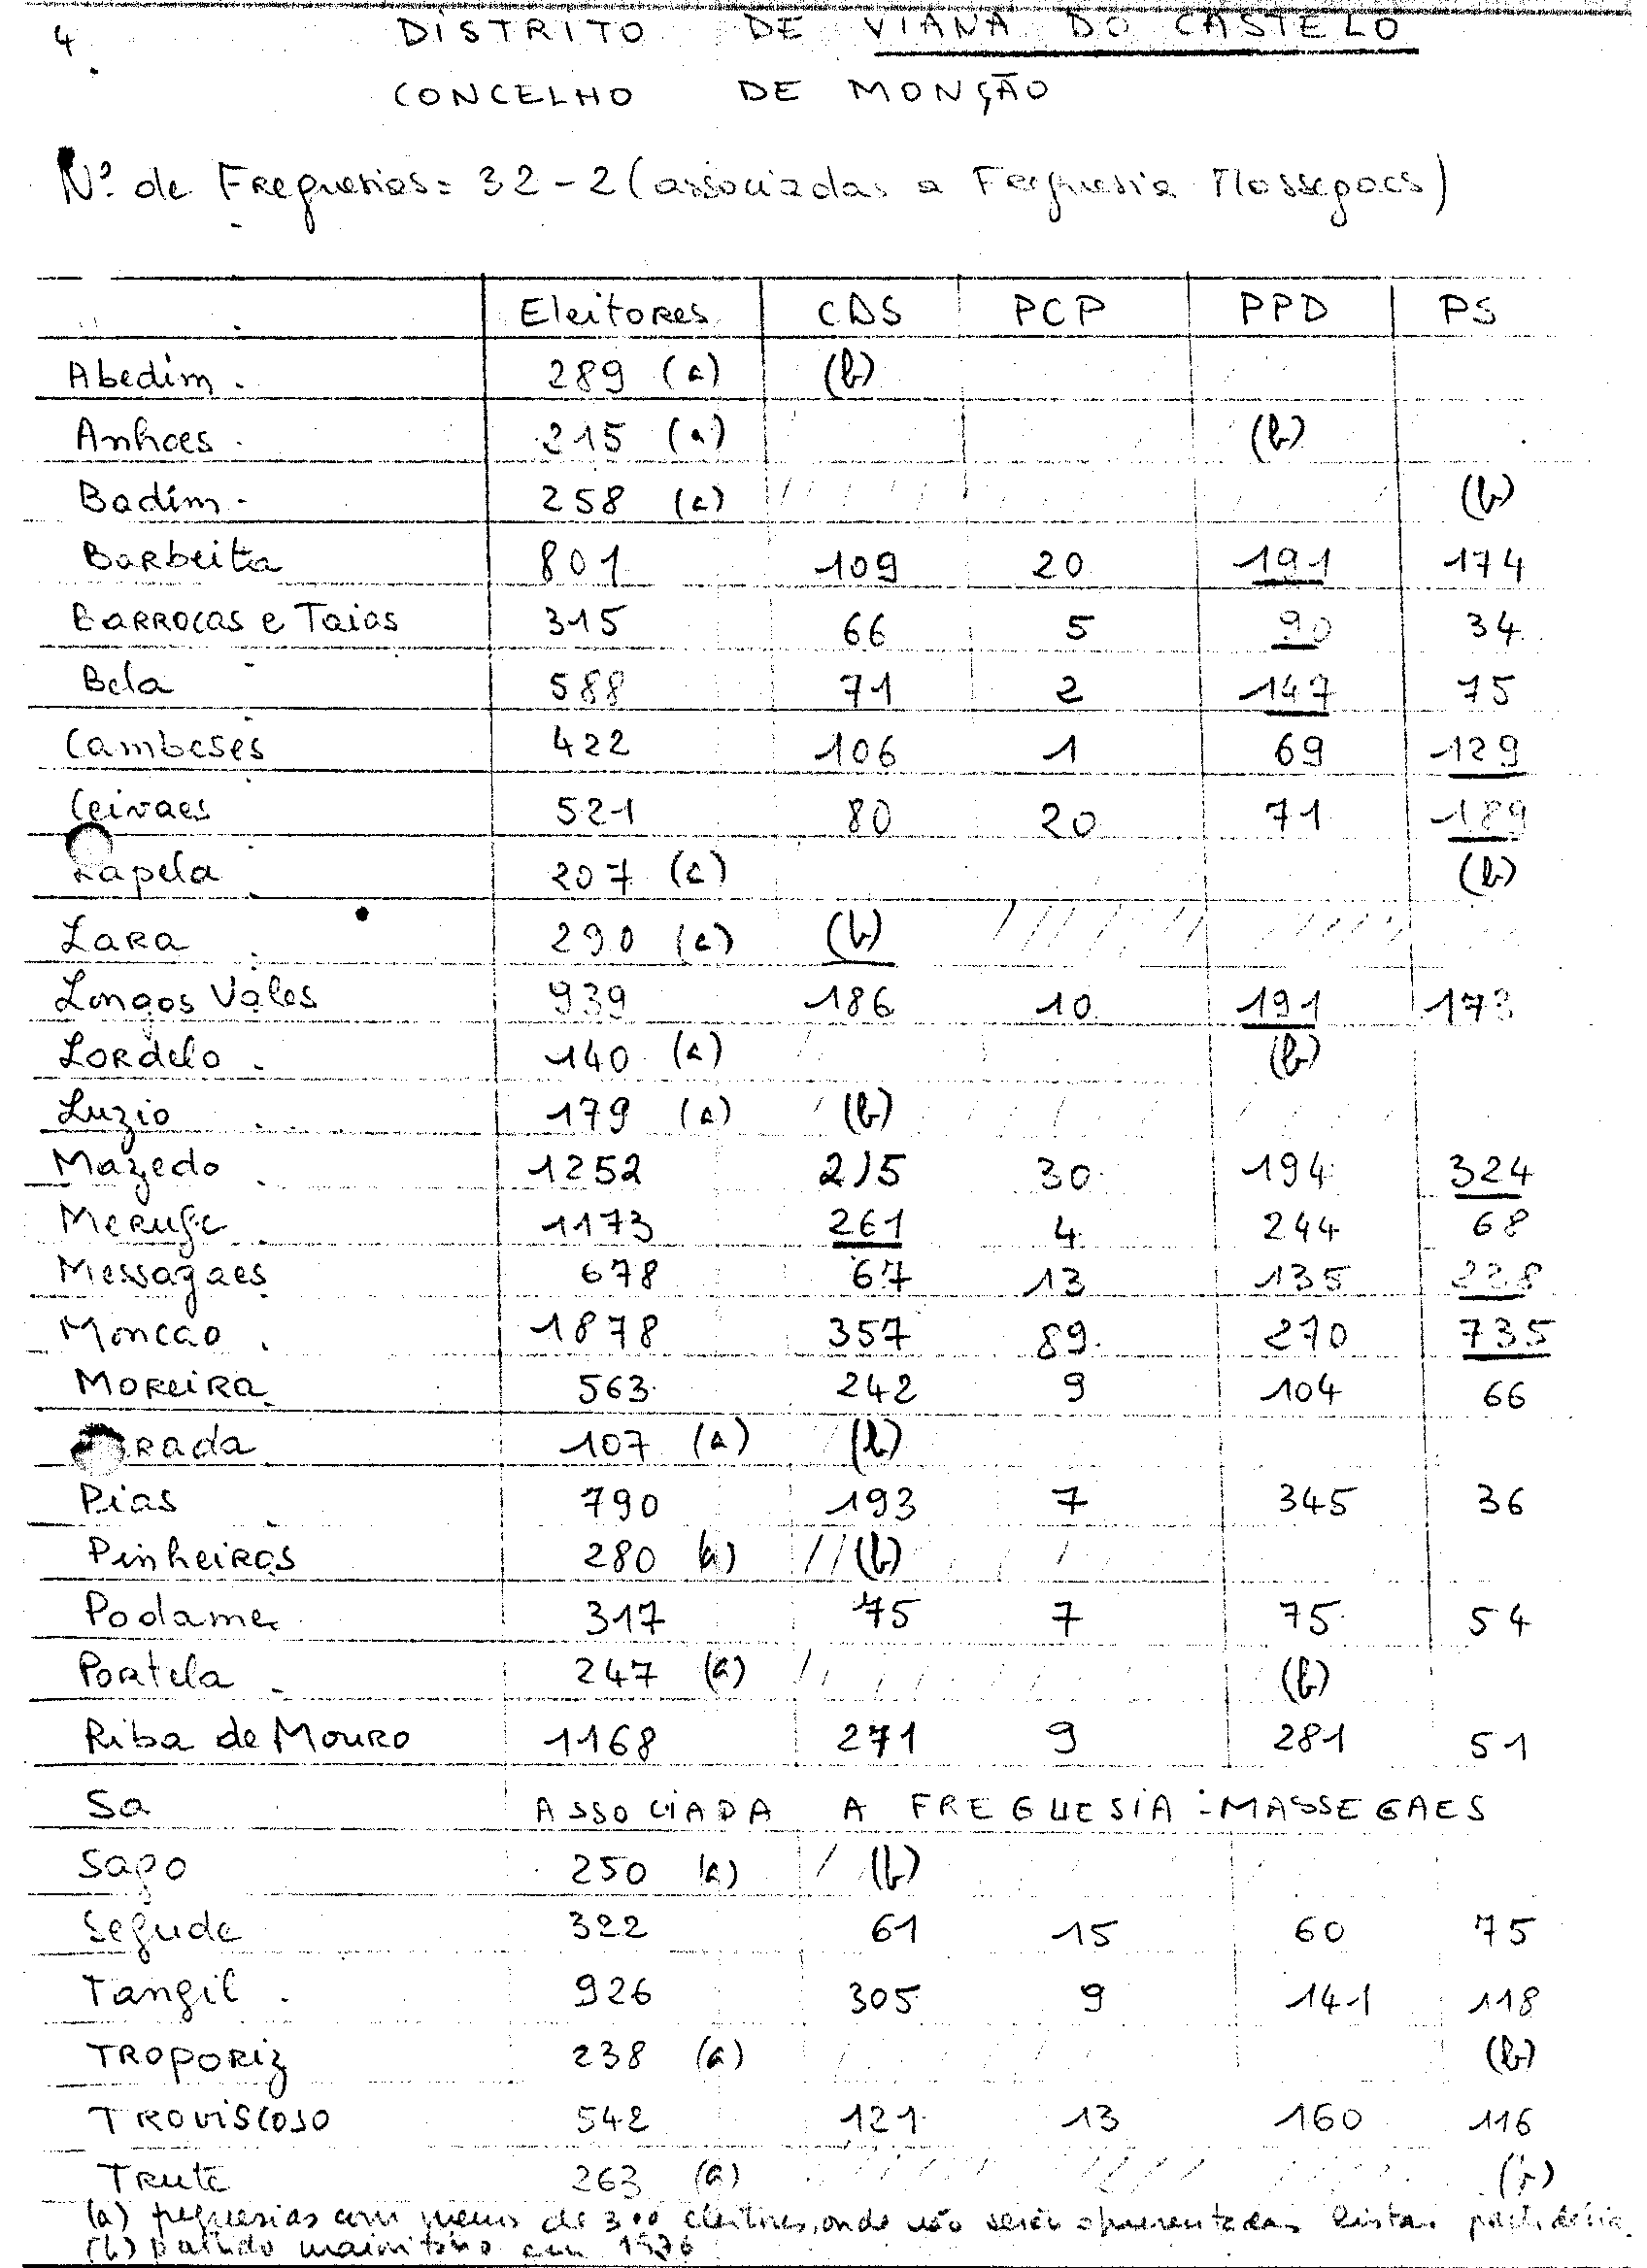 4
DISTRITO DE VIANA DO CASTELO
CONCELHO DE MONÇÃO
Nº de Freguesias = 32 - 2 (associadas a Freguesia Mossegaes)
Eleitores CDS PCP PPD PS
Abedim 289 (a) (b)
Anhoes 215 (a) (b)
Badim 258 (a) (b)
Barbeita 801 109 20 191 174
BARROCAS e Taias 315 66 5 90 34
Bela 588 71 2 147 75
Cambeses 422 106 1 69 129
Ceivaes 521 80 20 71 189
Lapela 207 (a) (b)
Lara 290 (a) (b)
Longos Vales 939 186 10 191 173
Lordelo 140 (a) (b)
Luzio 179 (a) (b)
Mazedo 1252 215 30 194 324
Merufe 1173 261 4 244 68
Messagaes 678 67 13 135 228
Moncao 1878 357 89 270 735
Moreira 563 242 9 104 66
rada 107 (a) (b)
Pias 790 193 7 345 36
Pinheiros 280 (a) (b)
Podame 317 75 7 75 54
Portela 247 (a) (b)
Riba de Mouro 1168 271 9 281 51
Sa ASSOCIADA A FREGUESIA - MASSEGAES
Sago 250 (a) (b)
Segude 322 61 15 60 75
Tangil 926 305 9 141 118
TROPORIZ 238 (a) (b)
TROVISCOSO 542 121 13 160 116
Trute 263 (a) (b)
(a) freguesias com menos de 300 eleitores, onde não serão apresentadas listas partidária
(b) partido maioritário em 1976